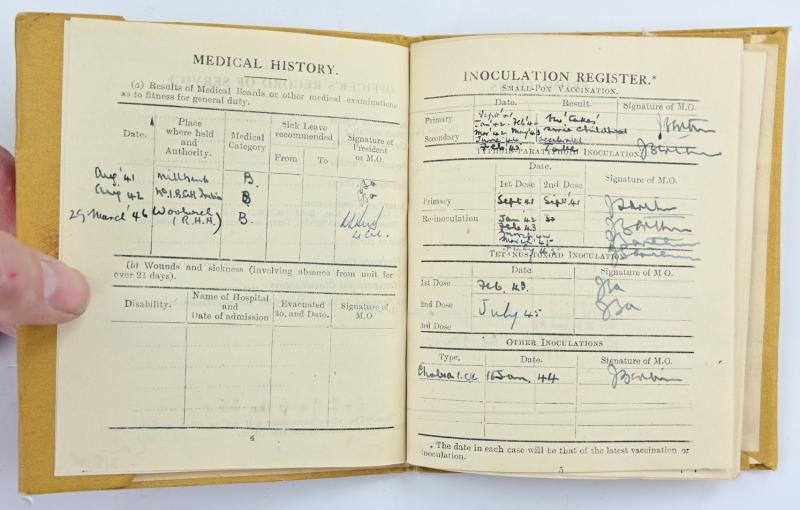 MEDICAL HISTORY.
(a) Results of Medical Boards or other medical examinations
as to fitness for general duty.
Date.
Place
where held
and
Authority.
Medical
Category
Sick Leave
recommended.
From
To
Signature of
President
or M.O.
Aug '41 Millbank B.
Aug 42 B
29 March '46 Woolwich B.
(R.H.H)
(b) Wounds and sickness (involving absence from unit for
over 21 days).
Disability.
Name of Hospital
and
Date of admission
Evacuated
to, and Date.
Signature of
M.O.
4
INOCULATION REGISTER.*
SMALL-POX VACCINATION.
Date.
Result.
Signature of M.O.
Primary
Secondary
Sept '41
Jan '42 - Feb '44
Mar '42 May '43
June '44
Feb 45
no 'takes'
since childhood
TYPHOID-PARATYPHOID INOCULATION
Date.
1st Dose
2nd Dose
Signature of M.O.
Primary Sept 41 Sept '41
Re-inoculation Jan '42
Feb 43
March '45
July 45
TETANUS TOXOID INOCULATION
Date
Signature of M.O.
1st Dose Feb. 43.
2nd Dose July 45
3rd Dose
OTHER INOCULATIONS
Type.
Date.
Signature of M.O.
Cholera 1.cc. Jan, 44
* The date in each case will be that of the latest vaccination or
inoculation.
5